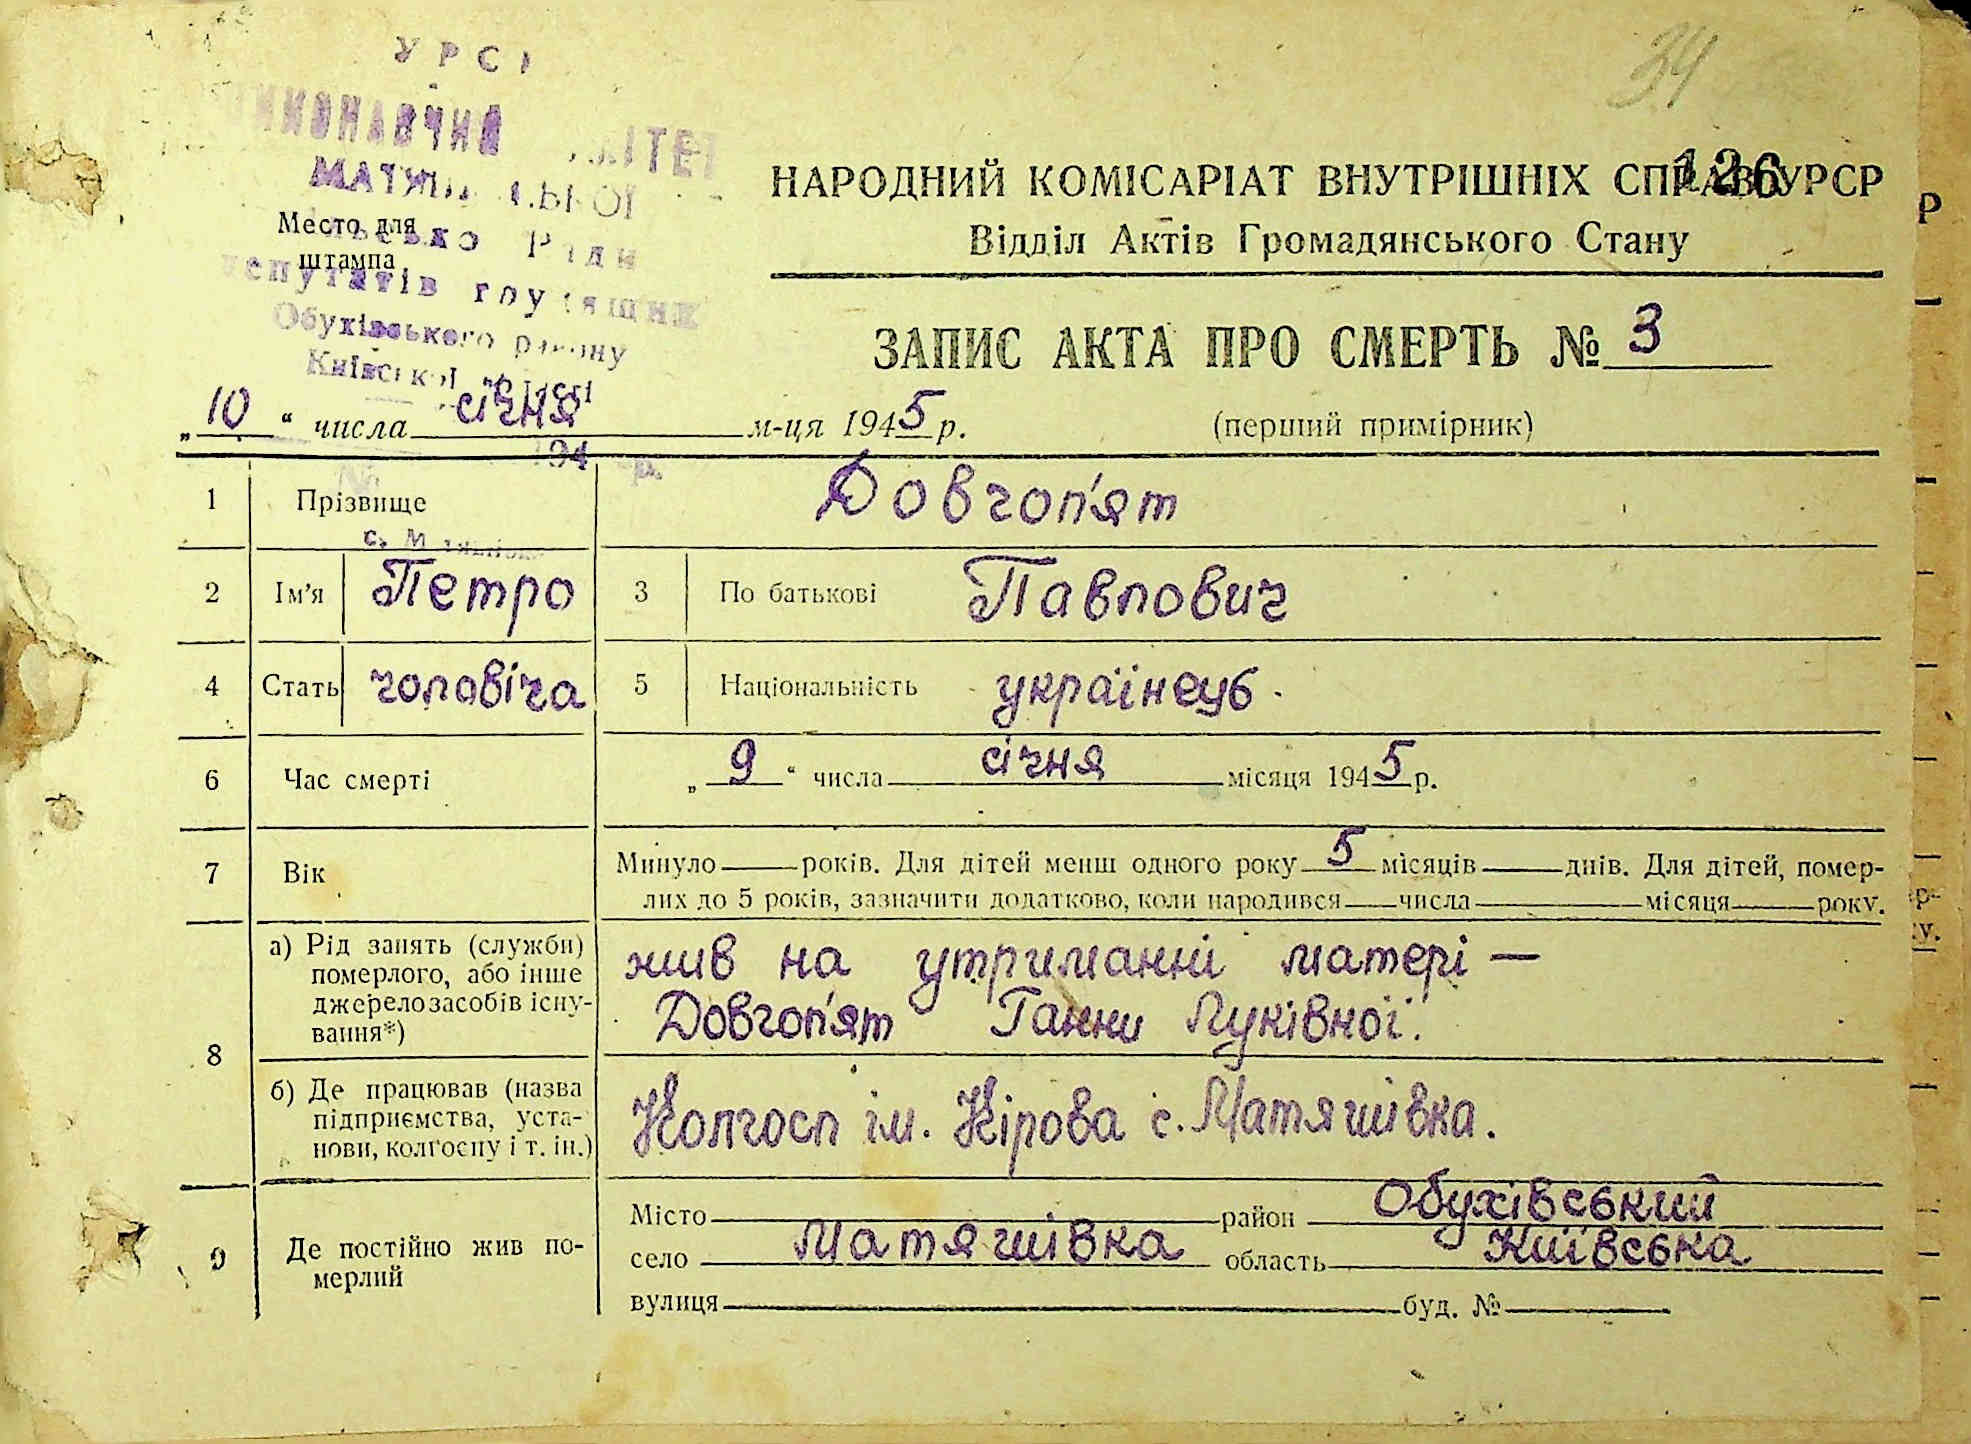 34
УРСР
126
НАРОДНИЙ КОМІСАРІАТ ВНУТРІШНІХ СПРАВ УРСР
Відділ Актів Громадянського Стану
Место для
штампа
Обухівського району
Київської області
ЗАПИС АКТА ПРО СМЕРТЬ № 3
„10“ числа січня м-ця 1945 р. (перший примірник)
194 р.
№
1 Прізвище Довгоп'ят
2 Ім'я Петро 3 По батькові Павлович
4 Стать чоловіча 5 Національність українець.
6 Час смерті „9“ числа січня місяця 1945 р.
7 Вік Минуло років. Для дітей менш одного року 5 місяців днів. Для дітей, помер-
лих до 5 років, зазначити додатково, коли народився числа місяця року.
8 а) Рід занять (служби) померлого, або інше джерело засобів існу-вання*)
жив на утриманні матері —
Довгоп'ят Ганни Луківної.
б) Де працював (назва підприємства, уста-нови, колгоспу і т. ін.)
Колгосп ім. Кірова с. Матяшівка.
9 Де постійно жив по-мерлий
Місто район Обухівський
село Матяшівка область Київська
вулиця буд. №